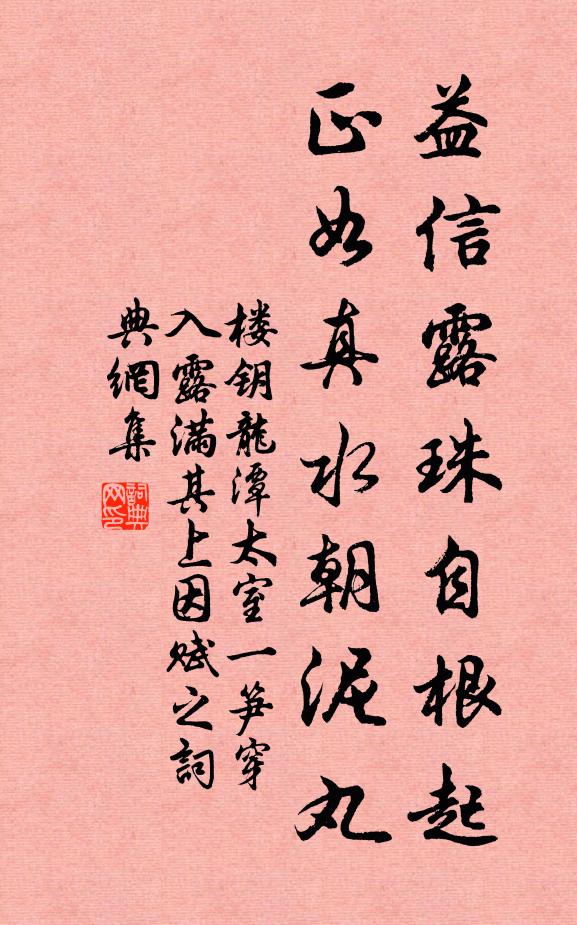 益信露珠自根起
正如真水朝泥丸
楼钥龍潭太室一笋穿
入露滿其上因赋之詞
典網集
詞典网印